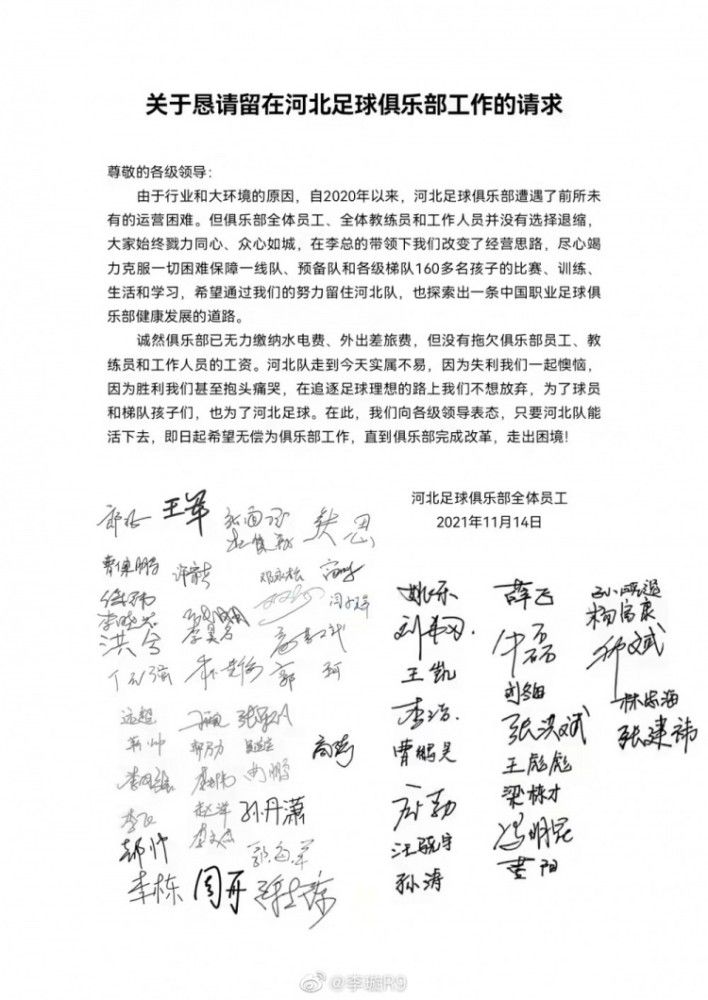 关于恳请留在河北足球俱乐部工作的请求
尊敬的各级领导：
由于行业和大环境的原因，自2020年以来，河北足球俱乐部遭遇了前所未
有的运营困难。但俱乐部全体员工、全体教练员和工作人员并没有选择退缩，
大家始终戮力同心、众心如城，在李总的带领下我们改变了经营思路，尽心竭
力克服一切困难保障一线队、预备队和各级梯队160多名孩子的比赛、训练、
生活和学习，希望通过我们的努力留住河北队，也探索出一条中国职业足球俱
乐部健康发展的道路。
诚然俱乐部已无力缴纳水电费、外出差旅费，但没有拖欠俱乐部员工、教
练员和工作人员的工资。河北队走到今天实属不易，因为失利我们一起懊恼，
因为胜利我们甚至抱头痛哭，在追逐足球理想的路上我们不想放弃，为了球员
和梯队孩子们，也为了河北足球。在此，我们向各级领导表态，只要河北队能
活下去，即日起希望无偿为俱乐部工作，直到俱乐部完成改革，走出困境!
河北足球俱乐部全体员工
2021年11月14日
王军
洪兮
郭珂
孙丹潇
李栋
周丹
姚乐
王凯
李浩
曹鹏昊
孙涛
薛飞
牛磊
张洪斌
王彪彪
梁栋才
冯明昆
黄阳
杨富康
林忠海
张建祎
@李璇R9